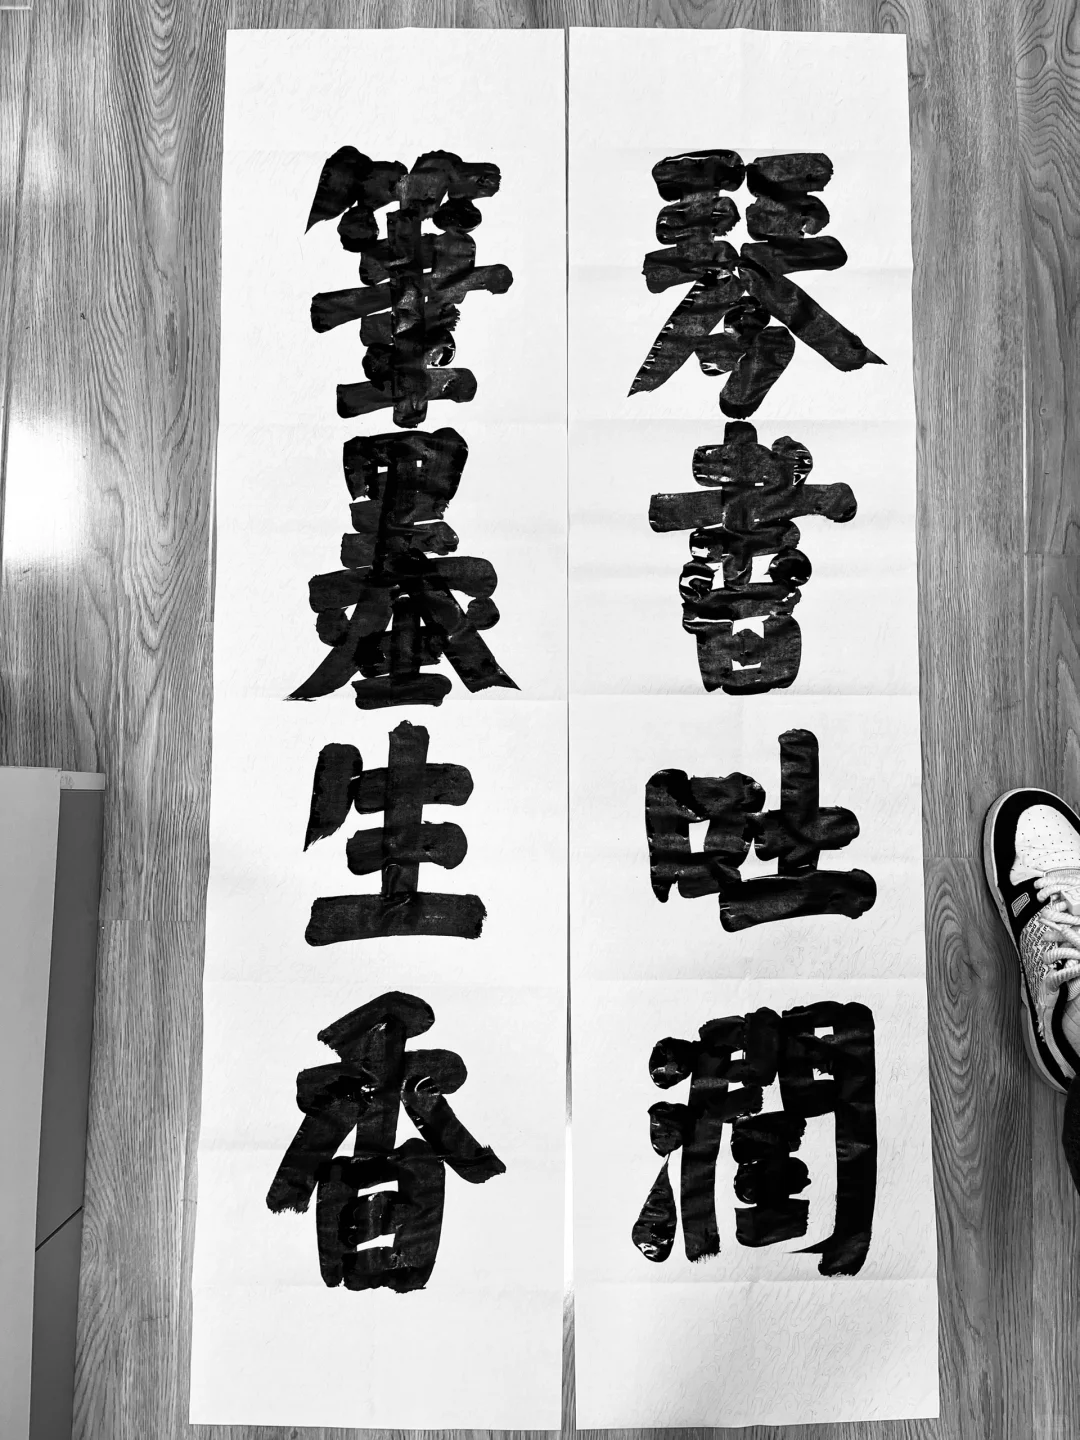 琴書吐潤
筆墨生香